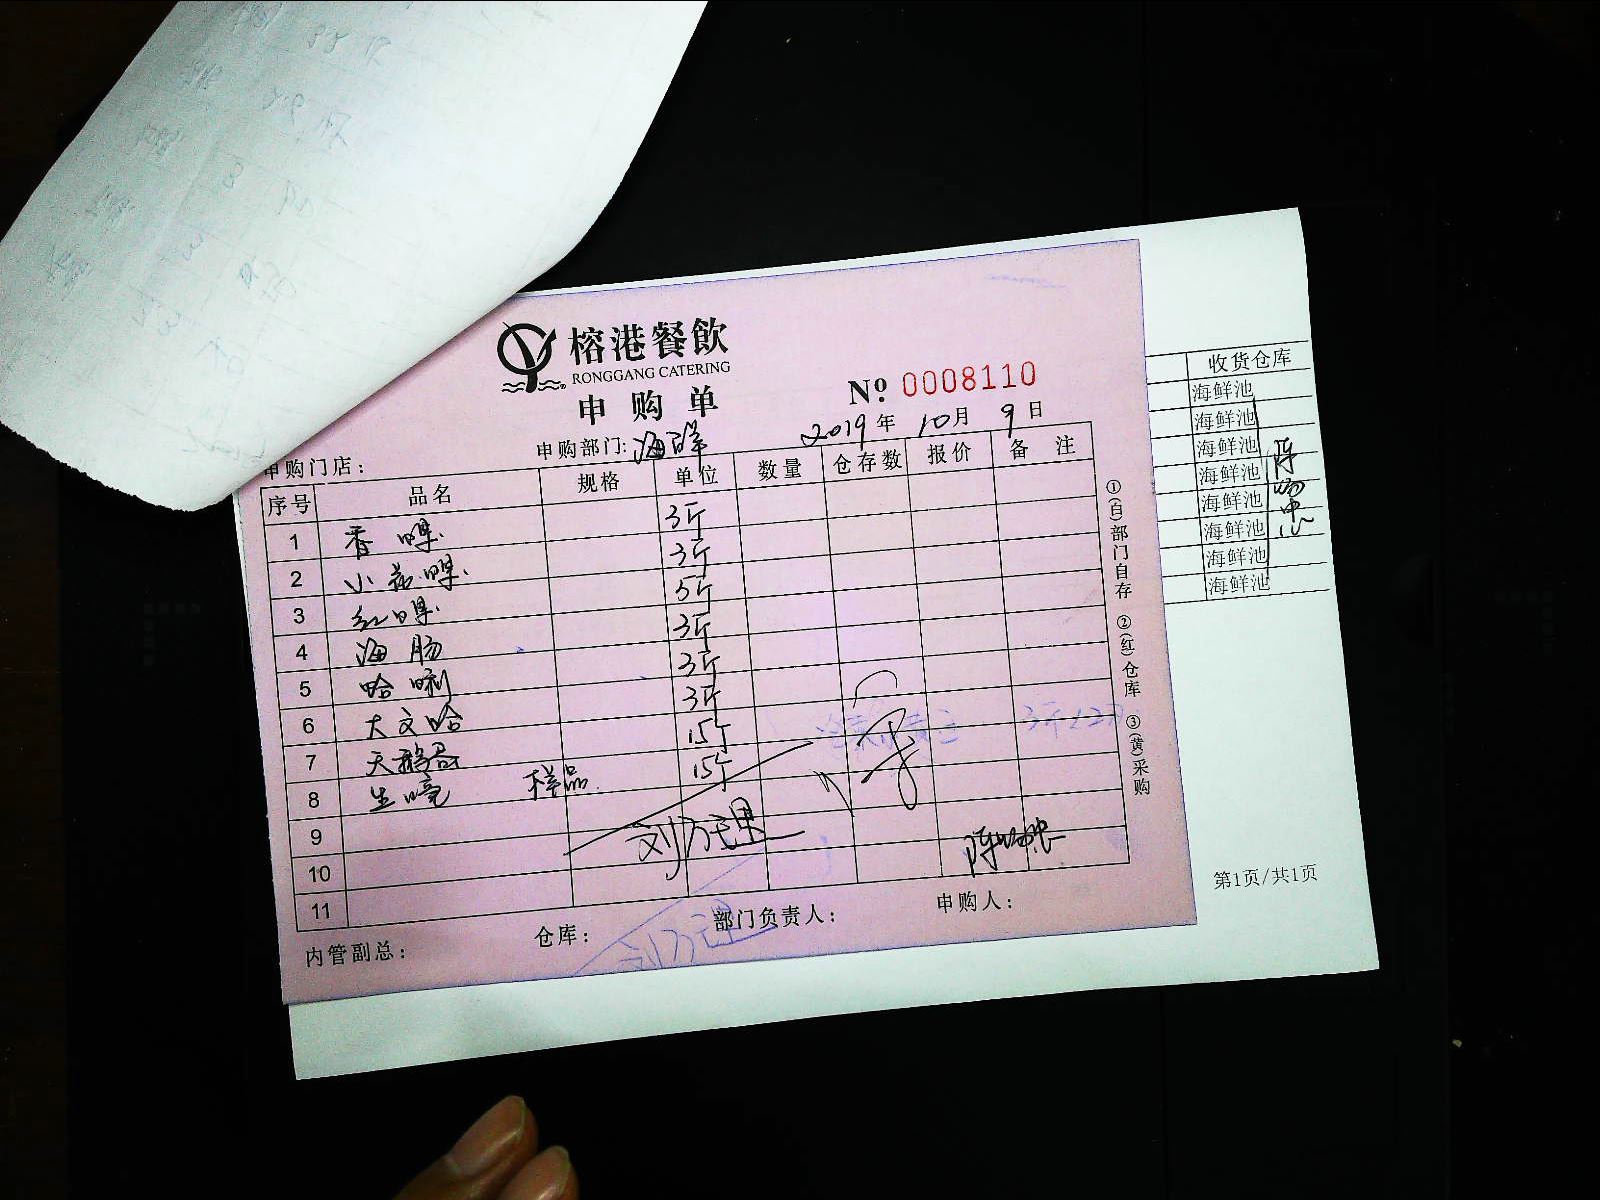 榕港餐飲
RONGGANG CATERING
申购单
№ 0008110
2019年 10月 9日
申购门店： 申购部门: 海鲜
序号 品名 规格 单位 数量 仓存数 报价 备注
1 香螺 3斤
2 小花螺 3斤
3 红螺 5斤
4 海肠 3斤
5 哈唎 3斤
6 大文哈 3斤
7 天鹅蛋 15个
8 生蠔 样品 15个
9
10
11
内管副总： 仓库： 部门负责人： 申购人：
刘万里
①(白)部门自存 ②(红)仓库 ③(黄)采购
收货仓库
海鲜池
海鲜池
海鲜池
海鲜池
海鲜池
海鲜池
海鲜池
海鲜池
第1页/共1页